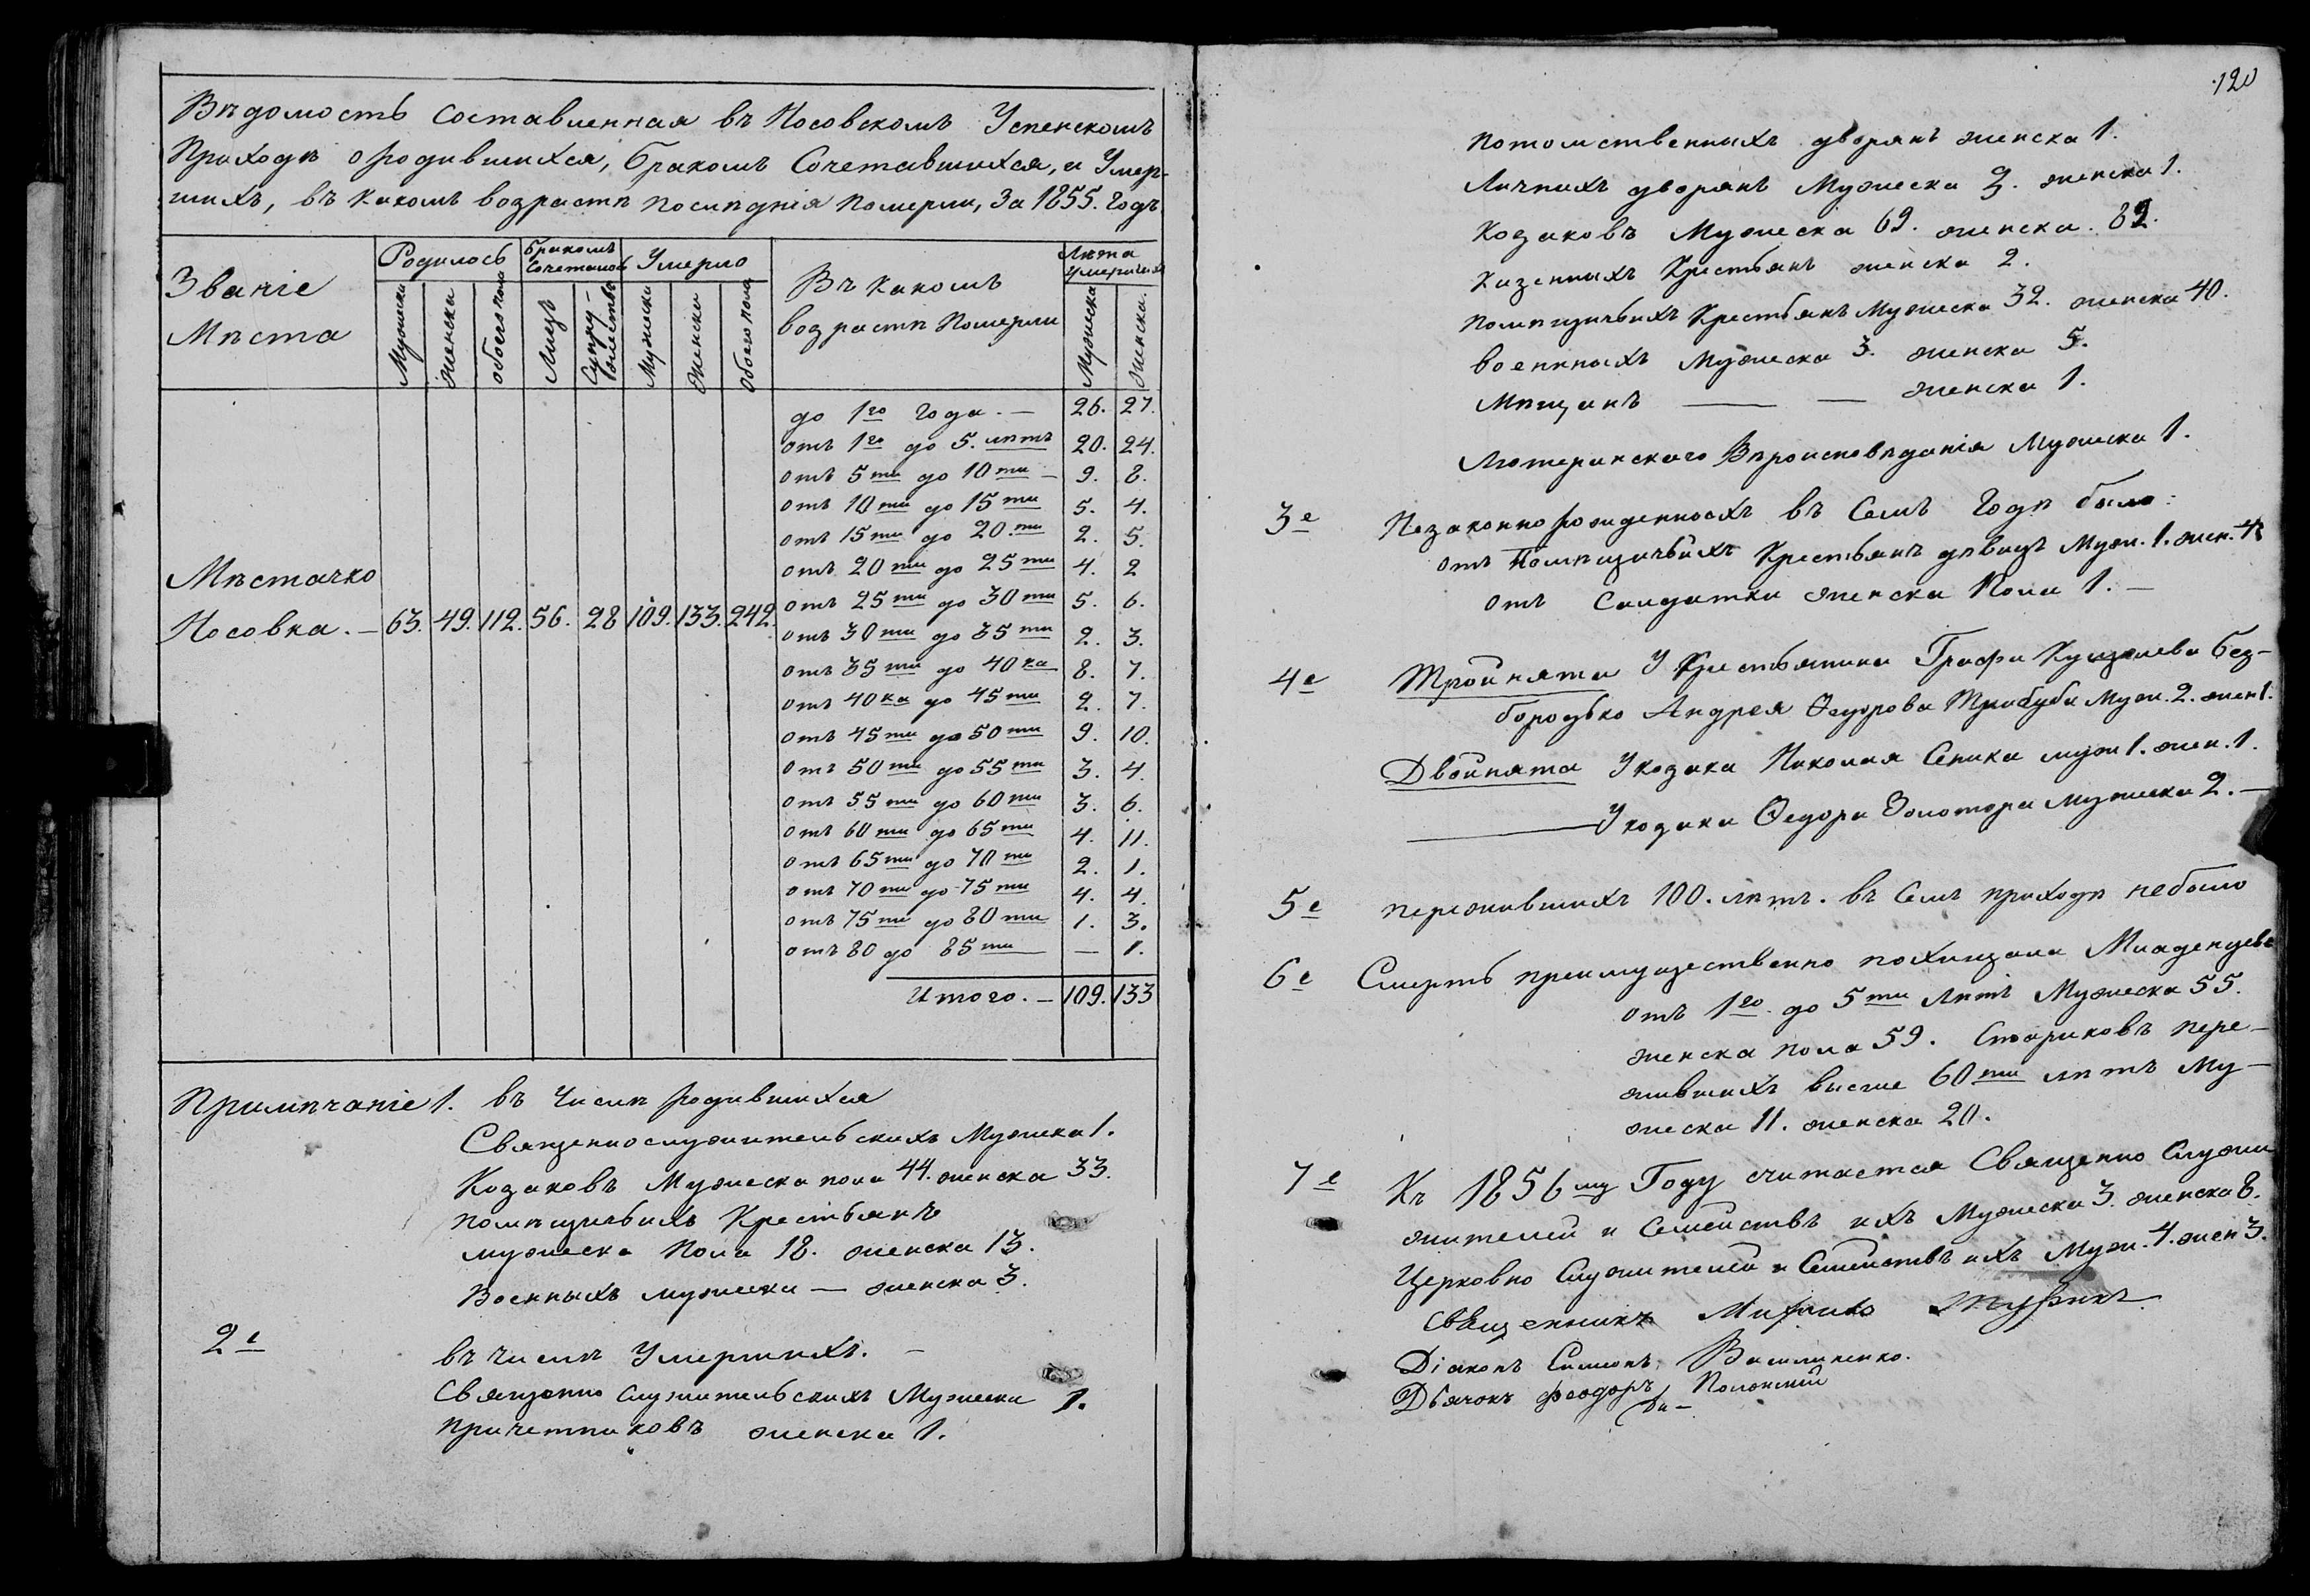 Вѣдомость составленная въ Носовскомъ Успенскомъ
Приходѣ о родившихся, бракомъ Сочетавшихся, и Умер-
шихъ, въ какомъ возрастѣ послѣднія померли, За 1855. Годъ
Званіе Мѣста
Родилось
Бракомъ Сочеталось
Умерло
Въ какомъ возрастѣ Померли
Лѣта умершихъ
Мужеска Женска обоего пола Лицъ Супружествъ Мужеска Женска Обоего пола Мужеска Женска.
до 1го Года. — 26. 27.
отъ 1го до 5. лѣтъ 20. 24.
отъ 5ти до 10ти — 9. 8.
отъ 10ти до 15ти 5. 4.
отъ 15ти до 20.ти 2. 5.
отъ 20ти до 25ти 4. 2
отъ 25ти до 30ти 5. 6.
отъ 30ти до 35ти 2. 3.
отъ 35ти до 40ка 8. 7.
отъ 40ка до 45ти 2. 7.
отъ 45ти до 50ти 9. 10.
отъ 50ти до 55ти 3. 4.
отъ 55ти до 60ти 3. 6.
отъ 60ти до 65ти 4. 11.
отъ 65ти до 70ти 2. 1.
отъ 70ти до 75ти 4. 4.
отъ 75ти до 80ти 1. 3.
отъ 80 до 85ти — 1.
Итого. — 109. 133
Мѣстачко
Носовка. — 63. 49. 112. 56. 28 109. 133. 242.
Примѣчаніе 1. въ Числѣ родившихся
Священнослужительскихъ Мужеска 1.
Козаковъ Мужеска пола 44. женска 33.
помѣщичьихъ Крестьянъ
мужеска Пола 18. женска 13.
Военныхъ мужеска — женска 3.
2е въ числѣ Умершихъ. —
Священно служительскихъ Мужеска 1.
причетниковъ женска 1.
120
потомственныхъ дворянъ женска 1.
Личныхъ дворянъ Мужеска 2. женска 1.
Козаковъ Мужеска 69. женска. 82.
Казенныхъ Крестьянъ женска 2.
помѣщичьихъ Крестьянъ Мужеска 32. женска 40.
военныхъ Мужеска 3. женска 5.
Мѣщанъ — — женска 1.
Лютеранскаго Вѣроисповѣданія Мужеска 1.
3е Незаконнорожденныхъ въ Семъ Годѣ было:
отъ Помѣщичьихъ Крестьянъ дѣвицъ Муж. 1. жен. 4
отъ Салдатки женска Пола 1. —
4е Тройнята У Крестьянина Графа Кушелева Без-
бородько Андрея Федорова Трибуба Муж. 2. жен 1.
Двойнята У козака Николая Сеника муж 1. жен. 1.
— У козака Федора Золотора мужеска 2. —
5е пережившихъ 100. лѣтъ. въ Семъ приходѣ небыло
6е Смерть преимущественно похищала Младенцевъ
отъ 1го до 5ти Лѣтъ Мужеска 55.
женска пола 59. Стариковъ пере-
жившихъ высше 60ти лѣтъ Му-
жеска 11. женска 20.
7е Къ 1856му Году считается Священно Служи
жителей и Семействъ ихъ Мужеска 3. женска 8.
Церковно Служителей и Семействъ ихъ Муж. 4. жен 3.
Священникъ
Діаконъ Симеонъ Василиненко.
Дьячокъ Феодоръ Полонскій